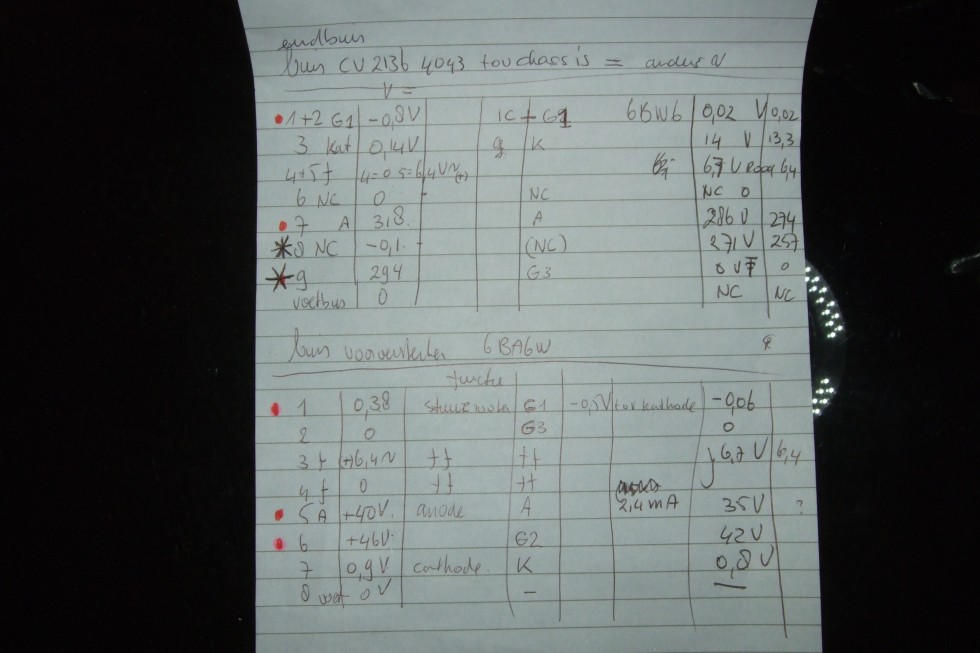 eindbuis
buis CV2136 4043 tov chassis = anders V
V =
1+2 G1 -0,8V IC + G1 6BW6 0,02 V 0,02
3 Kat 0,14V g K 14 V 13,3
4+5 f 4=0 5=6,4V~ (+) 6,7 V 6,4
6 NC 0 NC NC 0
7 A 318. A 286 V 274
8 NC -0,1. (NC) 271 V 257
9 294 G3 0 V 0
voetbus 0 NC NC
buis voorversterker 6BA6W
functie
1 0,38 stuurrooster G1 -0,5V tov kathode -0,06
2 0 G3 0
3 f (+)6,4~ ff ff 6,7 V 6,4
4 f 0 ff ff
5 A +40V. anode A 2,4 mA 35V ?
6 +46V. G2 42V
7 0,9V cathode. K 0,8V
8 voet 0V - —